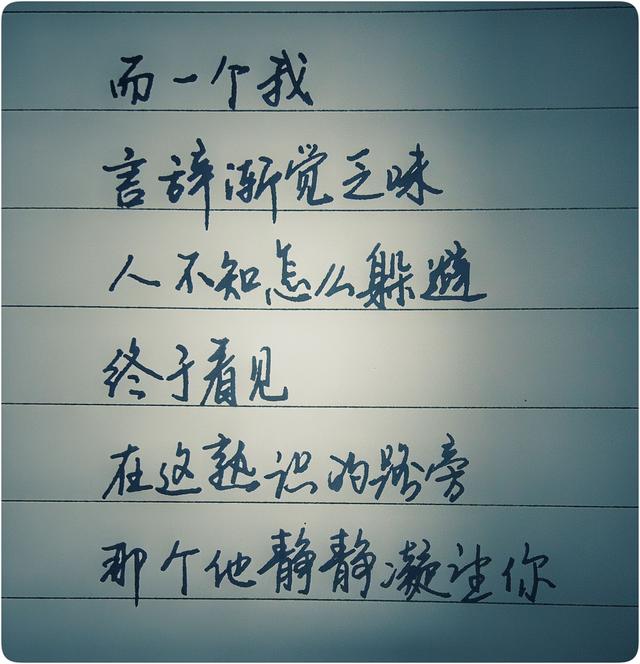 而一个我
言辞渐觉乏味
人不知怎么躲避
终于看见
在这熟识的路旁
那个他静静凝望你